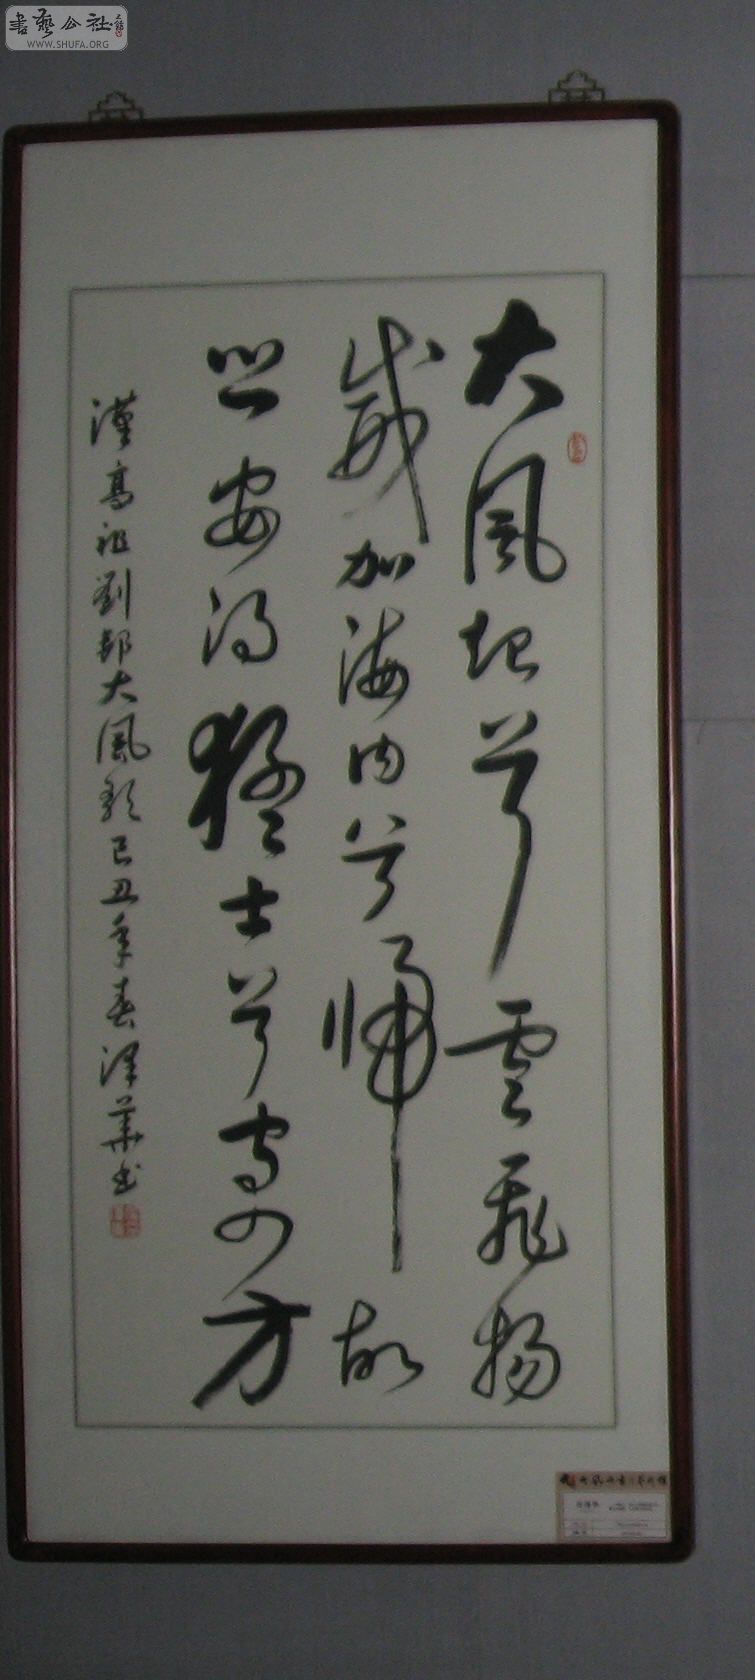 書藝公社
WWW.SHUFA.ORG
大風起兮雲飛揚
威加海内兮歸故
鄉安得猛士兮守四方
漢高祖劉邦大風歌己丑年春澤華书